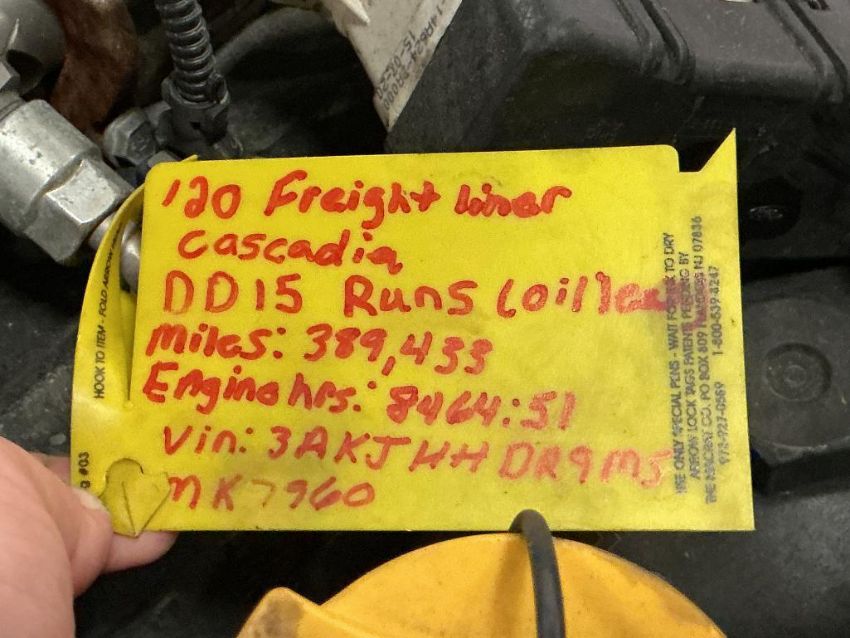 '20 Freightliner
Cascadia
DD15 Runs (oil leak
Miles: 389,433
Engine hrs: 8464:51
Vin: 3AKJHHDR9MS
MK7960
HOOK TO ITEM - FOLD ARROW
g #03
USE ONLY SPECIAL PENS - WAIT FOR INK TO DRY
ARROW LOCK TAGS PATENT PENDING BY
THE MACRAY CO. PO BOX 809 NJ 07836
973-927-0569 1-800-639-8247